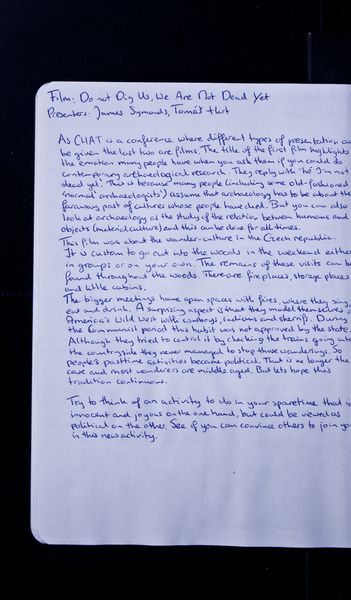 Film: Do not Dig Us, We Are Not Dead Yet
Presenters: James Symonds, Tomáš Hirt
As CHAT is a conference where different types of presentation can
be given the last two are films. The title of the first film highlights
the emotion many people have when you ask them if you could do
contemporary archaeological research. They reply with 'he I'm not
dead yet'. This is because many people (including some old-fashioned
'normal' archaeologists') assume that archaeology has to be about the
faraway past of cultures whose people have died. But you can also
look at archaeology as the study of the relation between humans and
objects (material culture) and this can be done for all times.
This film was about the wander-culture in the Czech republic.
It is custom to go out into the woods in the weekend either
in groups or on your own. The remains of these visits can be
found throughout the woods. There are fireplaces, storage places
and little cabins.
The bigger meetings have open spaces with fires, where they sing,
eat and drink. A surprising aspect is that they model themselves on
America's Wild West with cowboys, Indians and sheriffs. During
the Communist period this habit was not approved by the state.
Although they tried to control it by checking the trains going into
the countryside they never managed to stop those wanderings. So
people's pasttime activities became political. That is no longer the
case and most wanderers are middle aged. But lets hope this
tradition continuous.
Try to think of an activity to do in your sparetime that is
innocent and joyous on the one hand, but could be viewed as
political on the other. See if you can convince others to join you
in this new activity.